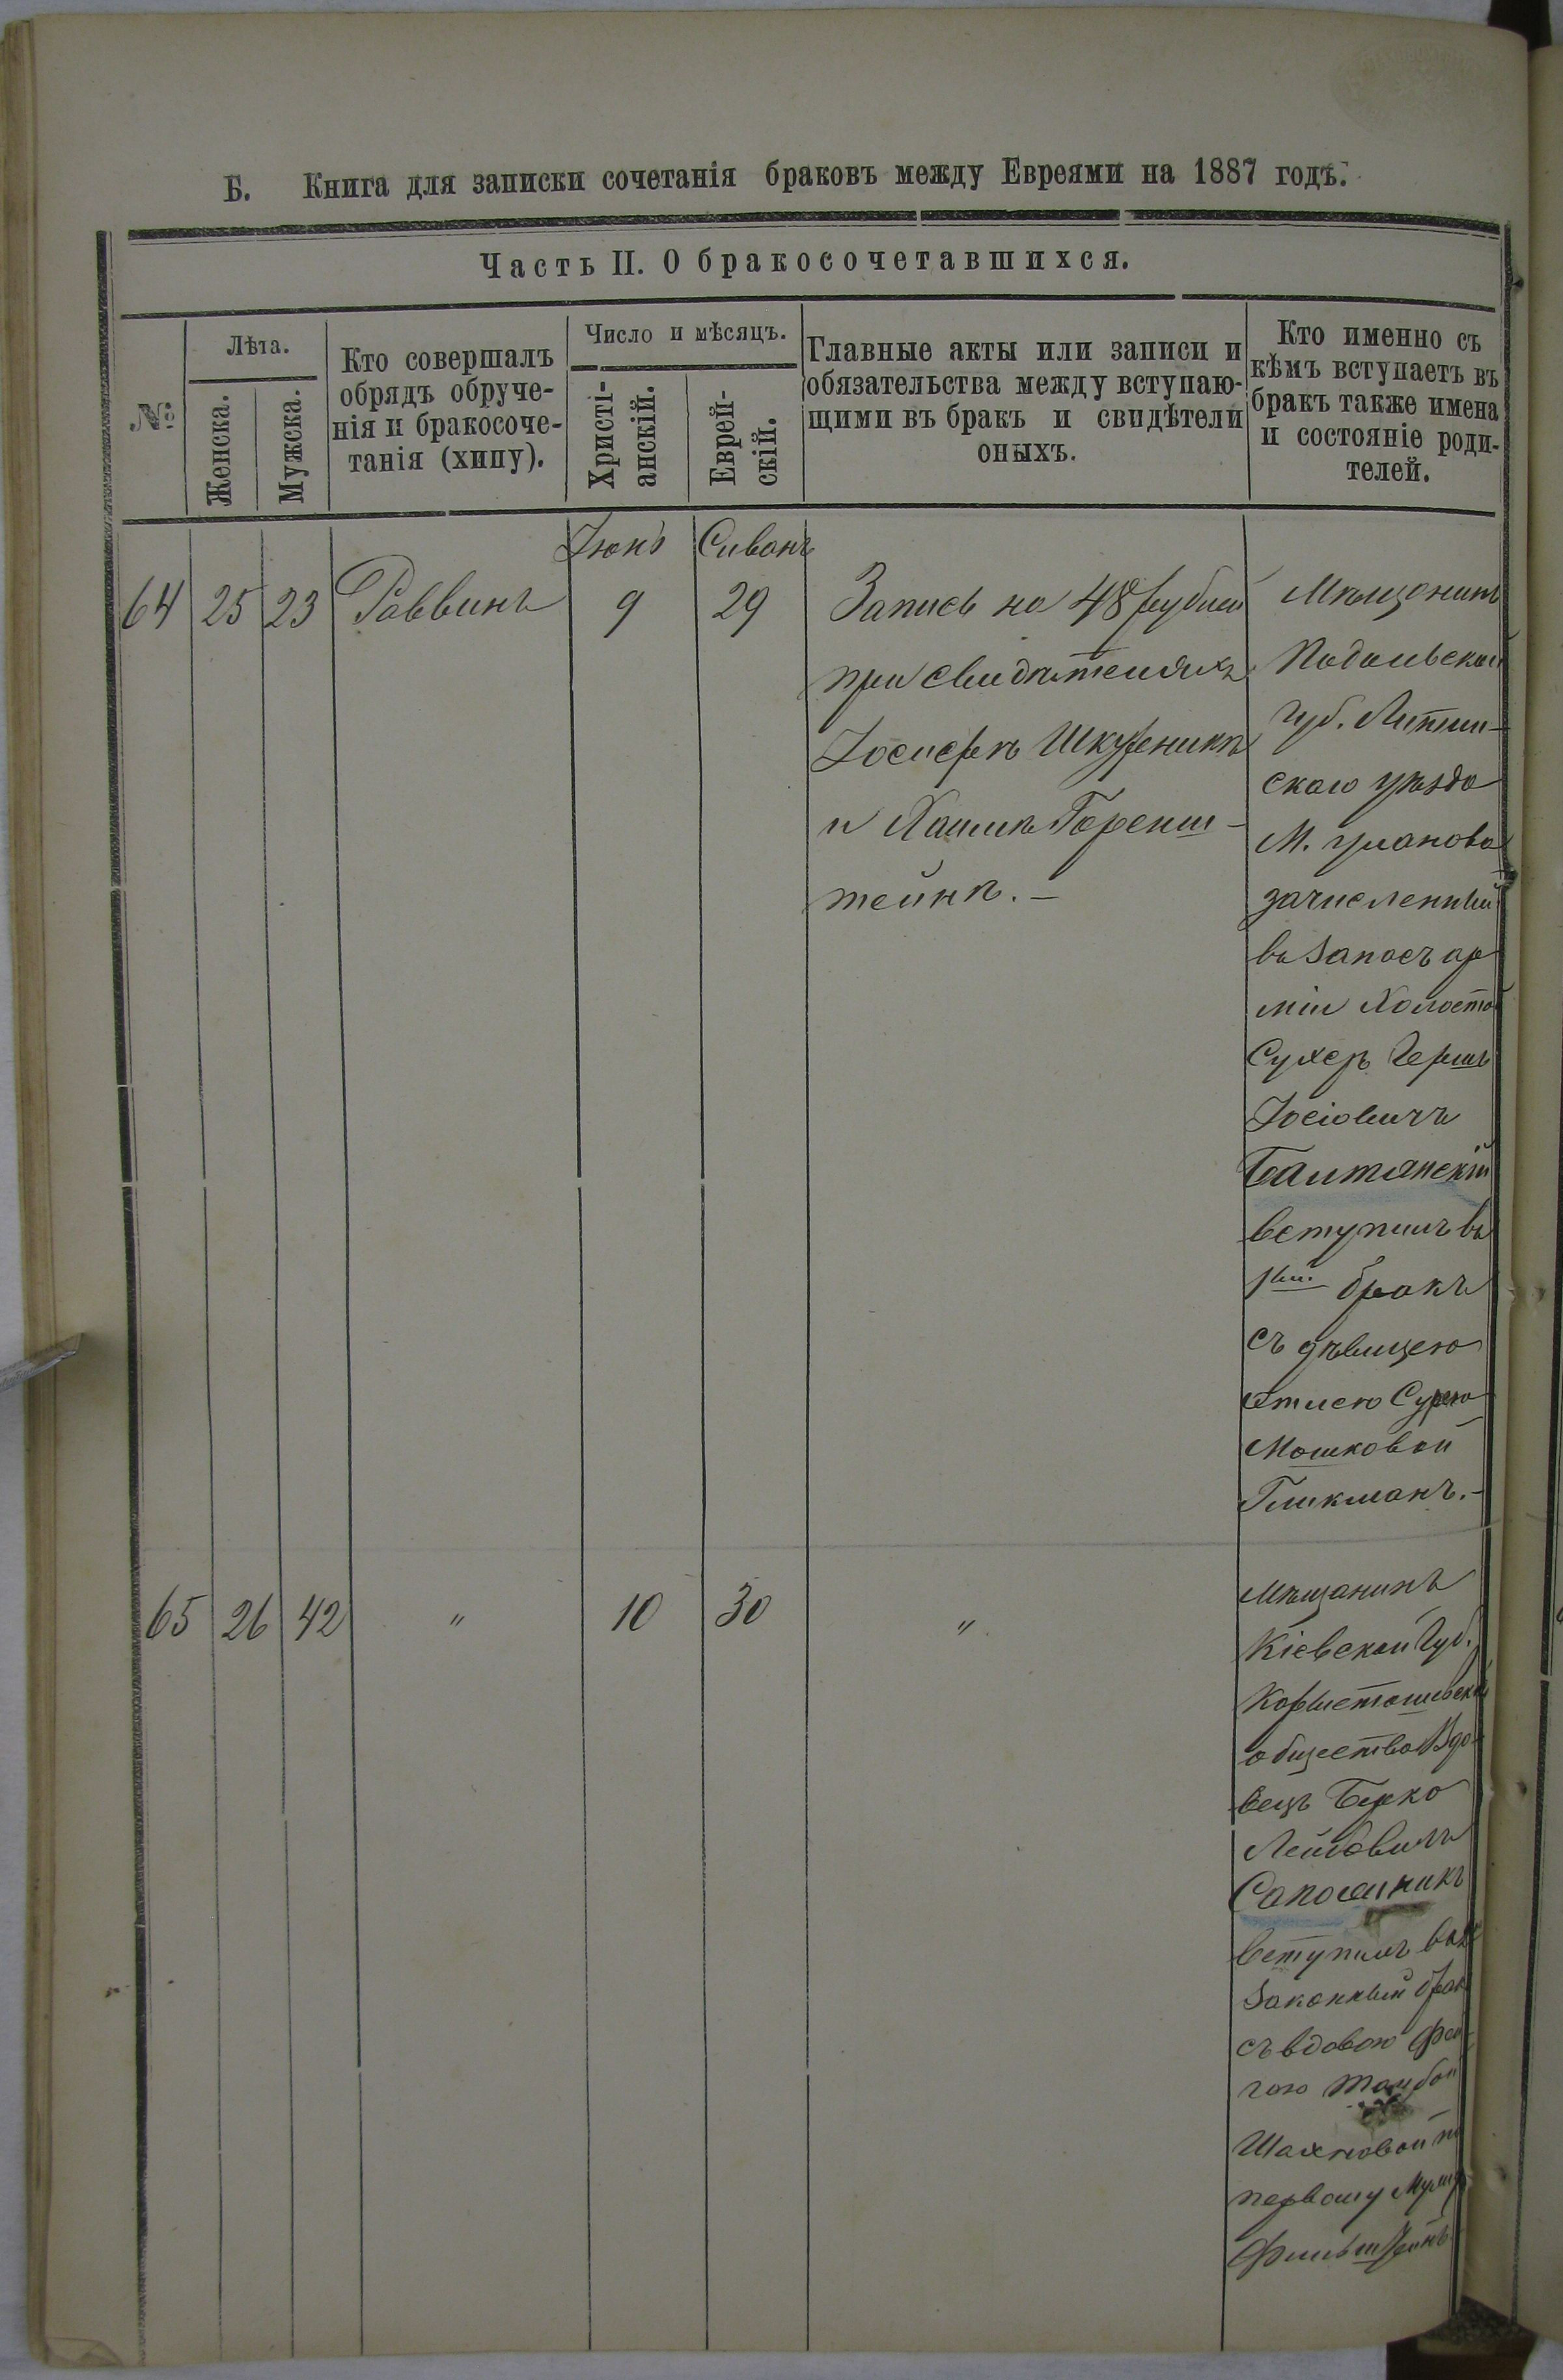 Б. Книга для записки сочетанія браковъ между Евреями на 1887 годъ.
Часть II. О бракосочетавшихся.
№
Лѣта.
Женска.
Мужска.
Кто совершалъ
обрядъ обруче-
нія и бракосоче-
танія (хипу).
Число и мѣсяцъ.
Христі-
анскій.
Еврей-
скій.
Главные акты или записи и
обязательства между вступаю-
щими въ бракъ и свидѣтели
оныхъ.
Кто именно съ
кѣмъ вступаетъ въ
бракъ также имена
и состояніе роди-
телей.
Іюнь Сиванъ
64 25 23 Раввинъ 9 29
Запись на 48 рублей
при свидѣтеляхъ
Іосифѣ Шкурникѣ
и Хаимѣ Горенш-
тейнѣ. —
Мѣщанинъ
Подольской
губ. Литин-
скаго уѣзда
М. Уланова
зачисленный
въ запасъ ар
міи Холостой
Сухеръ Гершъ
Іосіовичъ
Балтянскій
вступилъ въ
1вый бракъ
съ дѣвицею
Этлею Сурею
Мошковой
Гликманъ. —
65 26 42 " 10 30 "
Мѣщанинъ
Кіевской Губ.
общества Вдо
вецъ Берко
Лейбовичъ
Сапожникъ
вступилъ въ
Законный брак
съ вдовою Фей
гою
Шахновой по
первому мужу